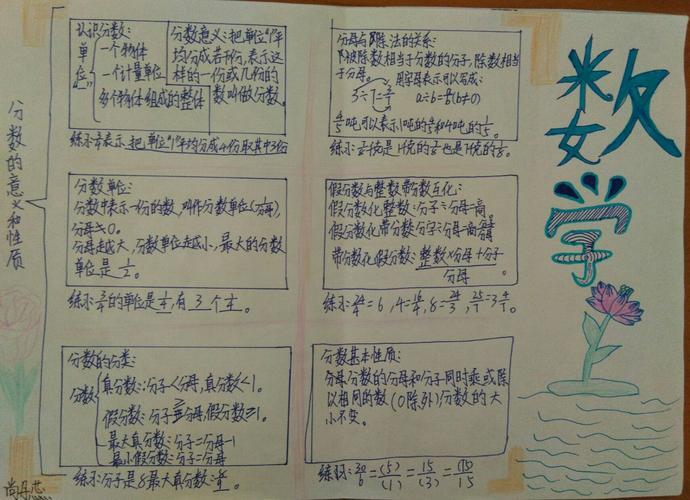 分数的意义和性质
认识分数:
单位"1"
一个物体
一个计量单位
多个物体组成的整体
分数意义:把单位"1"平
均分成若干份,表示这
样的一份或几份的
数叫做分数。
练习:表示 把单位"1"平均分成4份取其中3份
分数单位:
分数中表示一份的数,叫作分数单位(分母),
分母≠0。
分母越大,分数单位越小,最大的分数
单位是 1/2。
练习:3/4的单位是1/4有 3 个1/4。
分数的分类:
分数
真分数:分子<分母,真分数<1。
假分数:分子≥分母,假分数≥1。
最大真分数:分子=分母-1
最小假分数:分子=分母
练习:分子是8最大真分数:
分母与除法的关系:
被除数相当于分数的分子,除数相当
于分母。 用字母表示可以写成:
3÷7=3/7 a÷b=a/b(b≠0)
吨可以表示1吨的和4吨的1/5。
练习:
假分数与整数带分数互化:
假分数化整数:分子÷分母=商。
假分数化带分数:分子÷分母=商
带分数化假分数:整数×分母+分子
分母
练习:24/4=6,4=16/4,8=24/3,
分数基本性质:
分母分数的分母和分子同时乘或除
以相同的数(0除外)分数的大
小不变。
练习:30/6=(5)/(1)=15/(3)=(75)/15
数学
尚丹芯